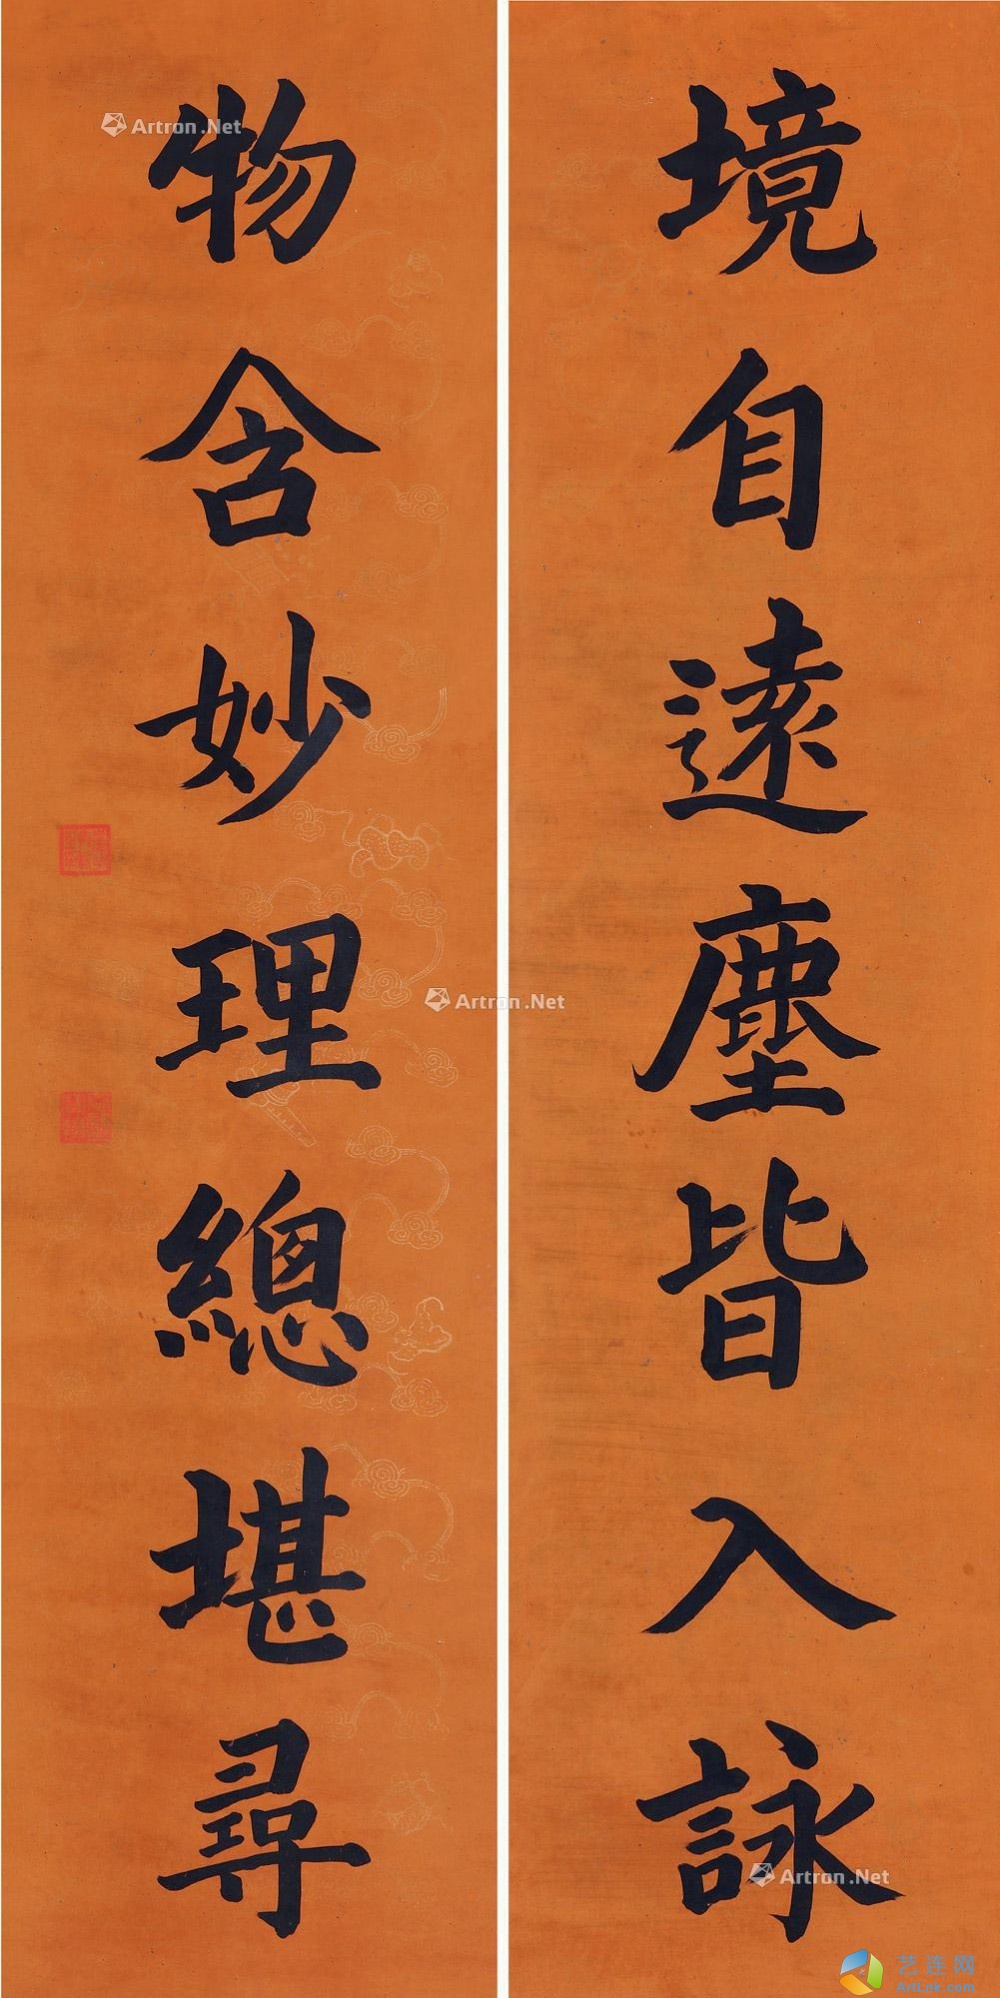 境自遠塵皆入詠
物含妙理總堪尋
Artron.Net
Artron.Net
Artron.Net
艺连网
ArtLnk.com